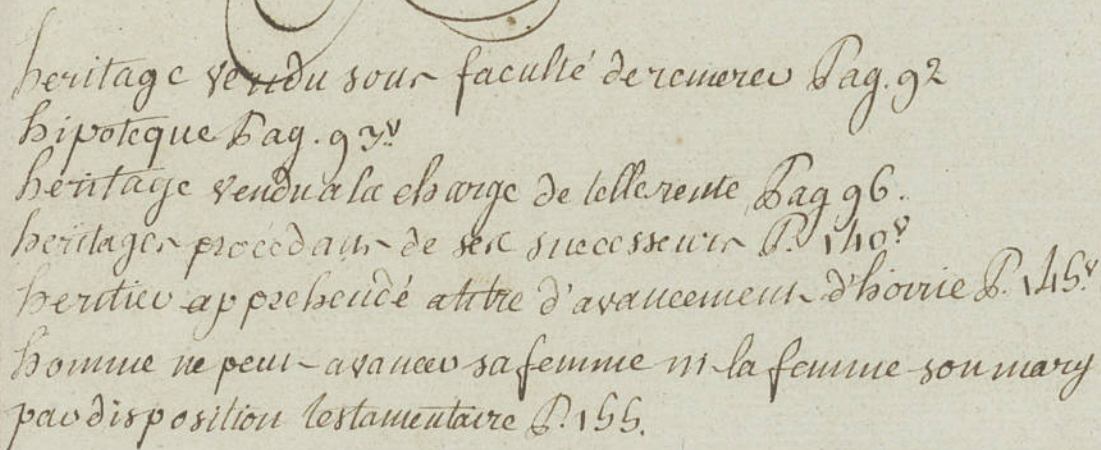 heritage vendu sous faculté de remerer Pag. 92
hipoteque Pag. 93v.
heritage vendu a la charge de telle rente Pag 96.
heritages procedans de ses successeurs P. 140v
heritier apprehendé a titre d'avancement d'hoirie P. 145v.
homme ne peut avancer sa femme ni la femme son mary
par disposition testamentaire P. 155.